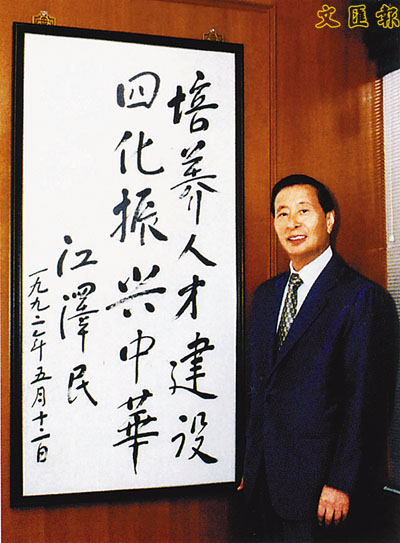 文匯報
培养人才建设
四化振兴中華
江澤民
一九九二年五月十二日